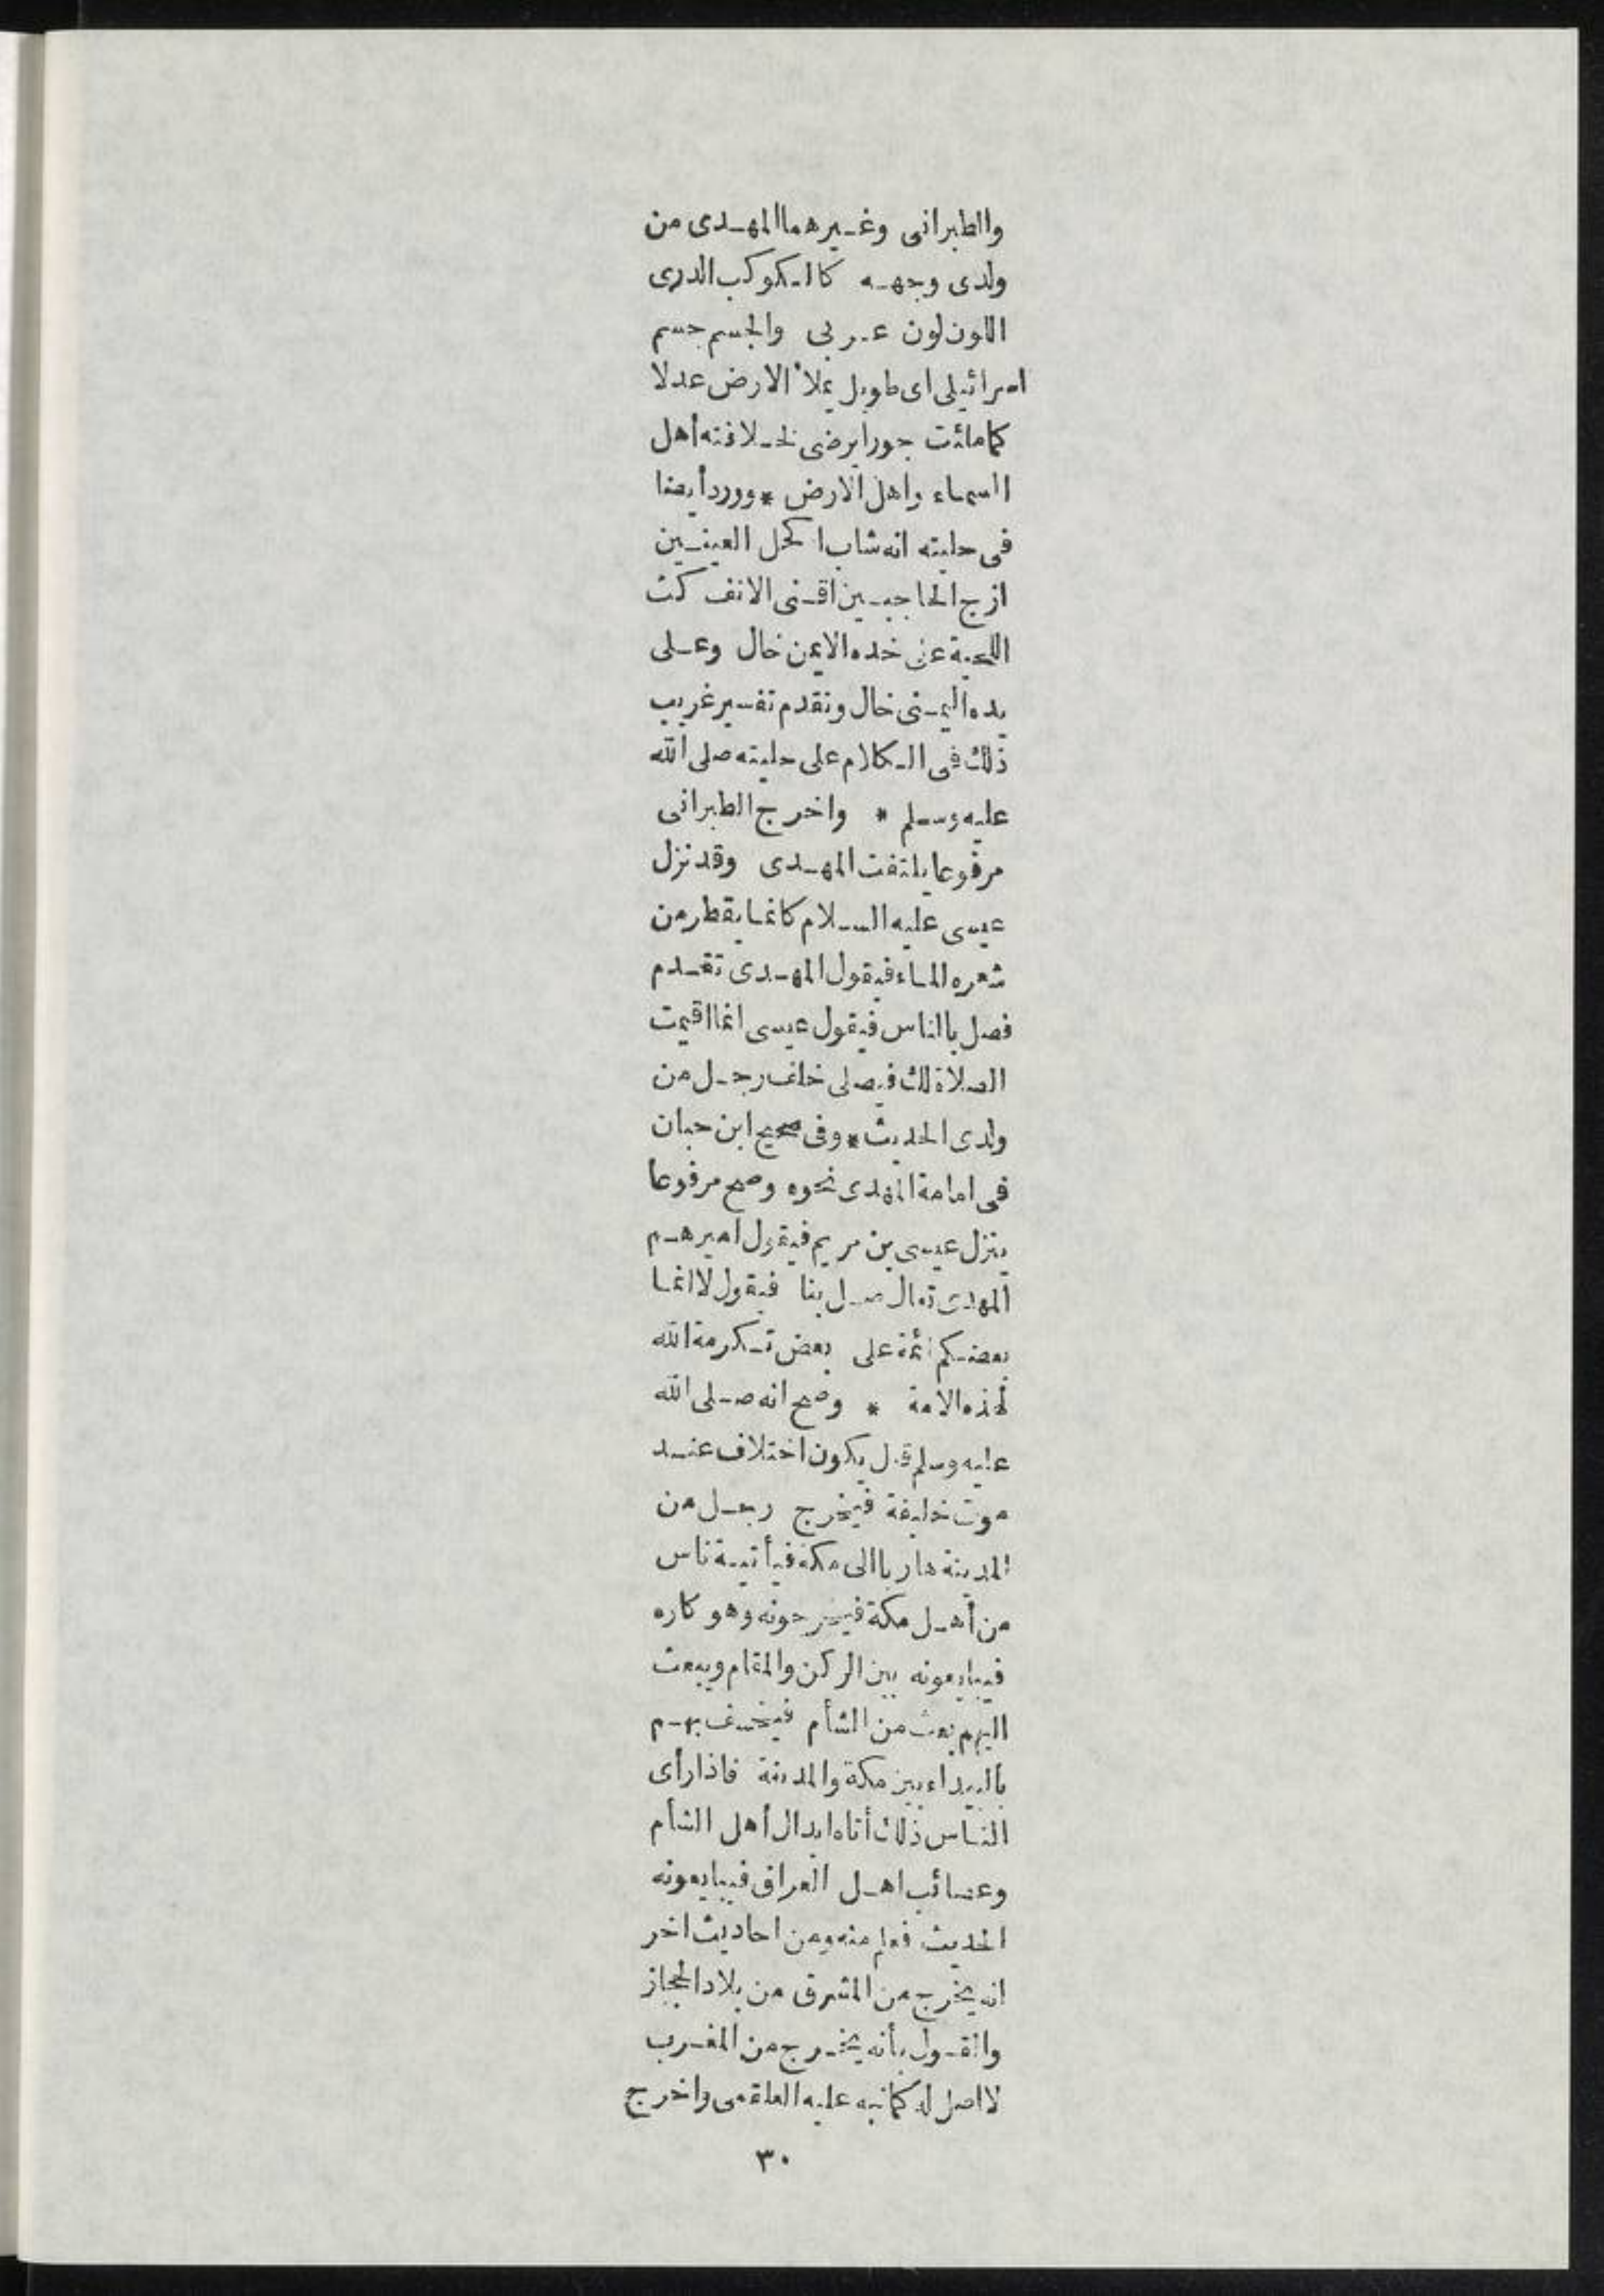 والطبرانى وغيرهما المهدى من
ولدى وجهه كالكوكب الدرى
اللون لون عربى والجسم جسم
اسرائيلى اى طويل يملأ الارض عدلا
كما ملئت جورا يرضى لخلافته أهل
السماء واهل الارض * وورد أيضا
فى حليته انه شاب اكحل العينين
ازج الحاجبين اقنى الانف كث
اللحية على خده الايمن خال وعلى
يده اليمنى خال وتقدم تفسير غريب
ذلك فى الكلام على حليته صلى الله
عليه وسلم * واخرج الطبرانى
مرفوعا يلتفت المهدى وقد نزل
عيسى عليه السلام كانما يقطر من
شعره الماء فيقول المهدى تقدم
فصل بالناس فيقول عيسى انما اقيمت
الصلاة لك فيصلى خلف رجل من
ولدى الحديث * وفى صحيح ابن حبان
فى امامة المهدى نحوه وصح مرفوعا
ينزل عيسى بن مريم فيقول اميرهم
المهدى تعال صل بنا فيقول لا انما
بعضكم أئمة على بعض تكرمة الله
لهذه الامة * وصح انه صلى الله
عليه وسلم قال يكون اختلاف عند
موت خليفة فيخرج رجل من
المدينة هاربا الى مكة فيأتية ناس
من أهل مكة فيخرجونه وهو كاره
فيبايعونه بين الركن والمقام ويبعث
اليهم بعث من الشأم فيخسف بهم
بالبيداء بين مكة والمدينة فاذا رأى
الناس ذلك أتاه ابدال أهل الشأم
وعصائب اهل العراق فيبايعونه
الحديث فعلم منه ومن احاديث اخر
انه يخرج من المشرق من بلاد الحجاز
والقول بأنه يخرج من المغرب
لا اصل له كما نبه عليه العلقمى واخرج
٣٠